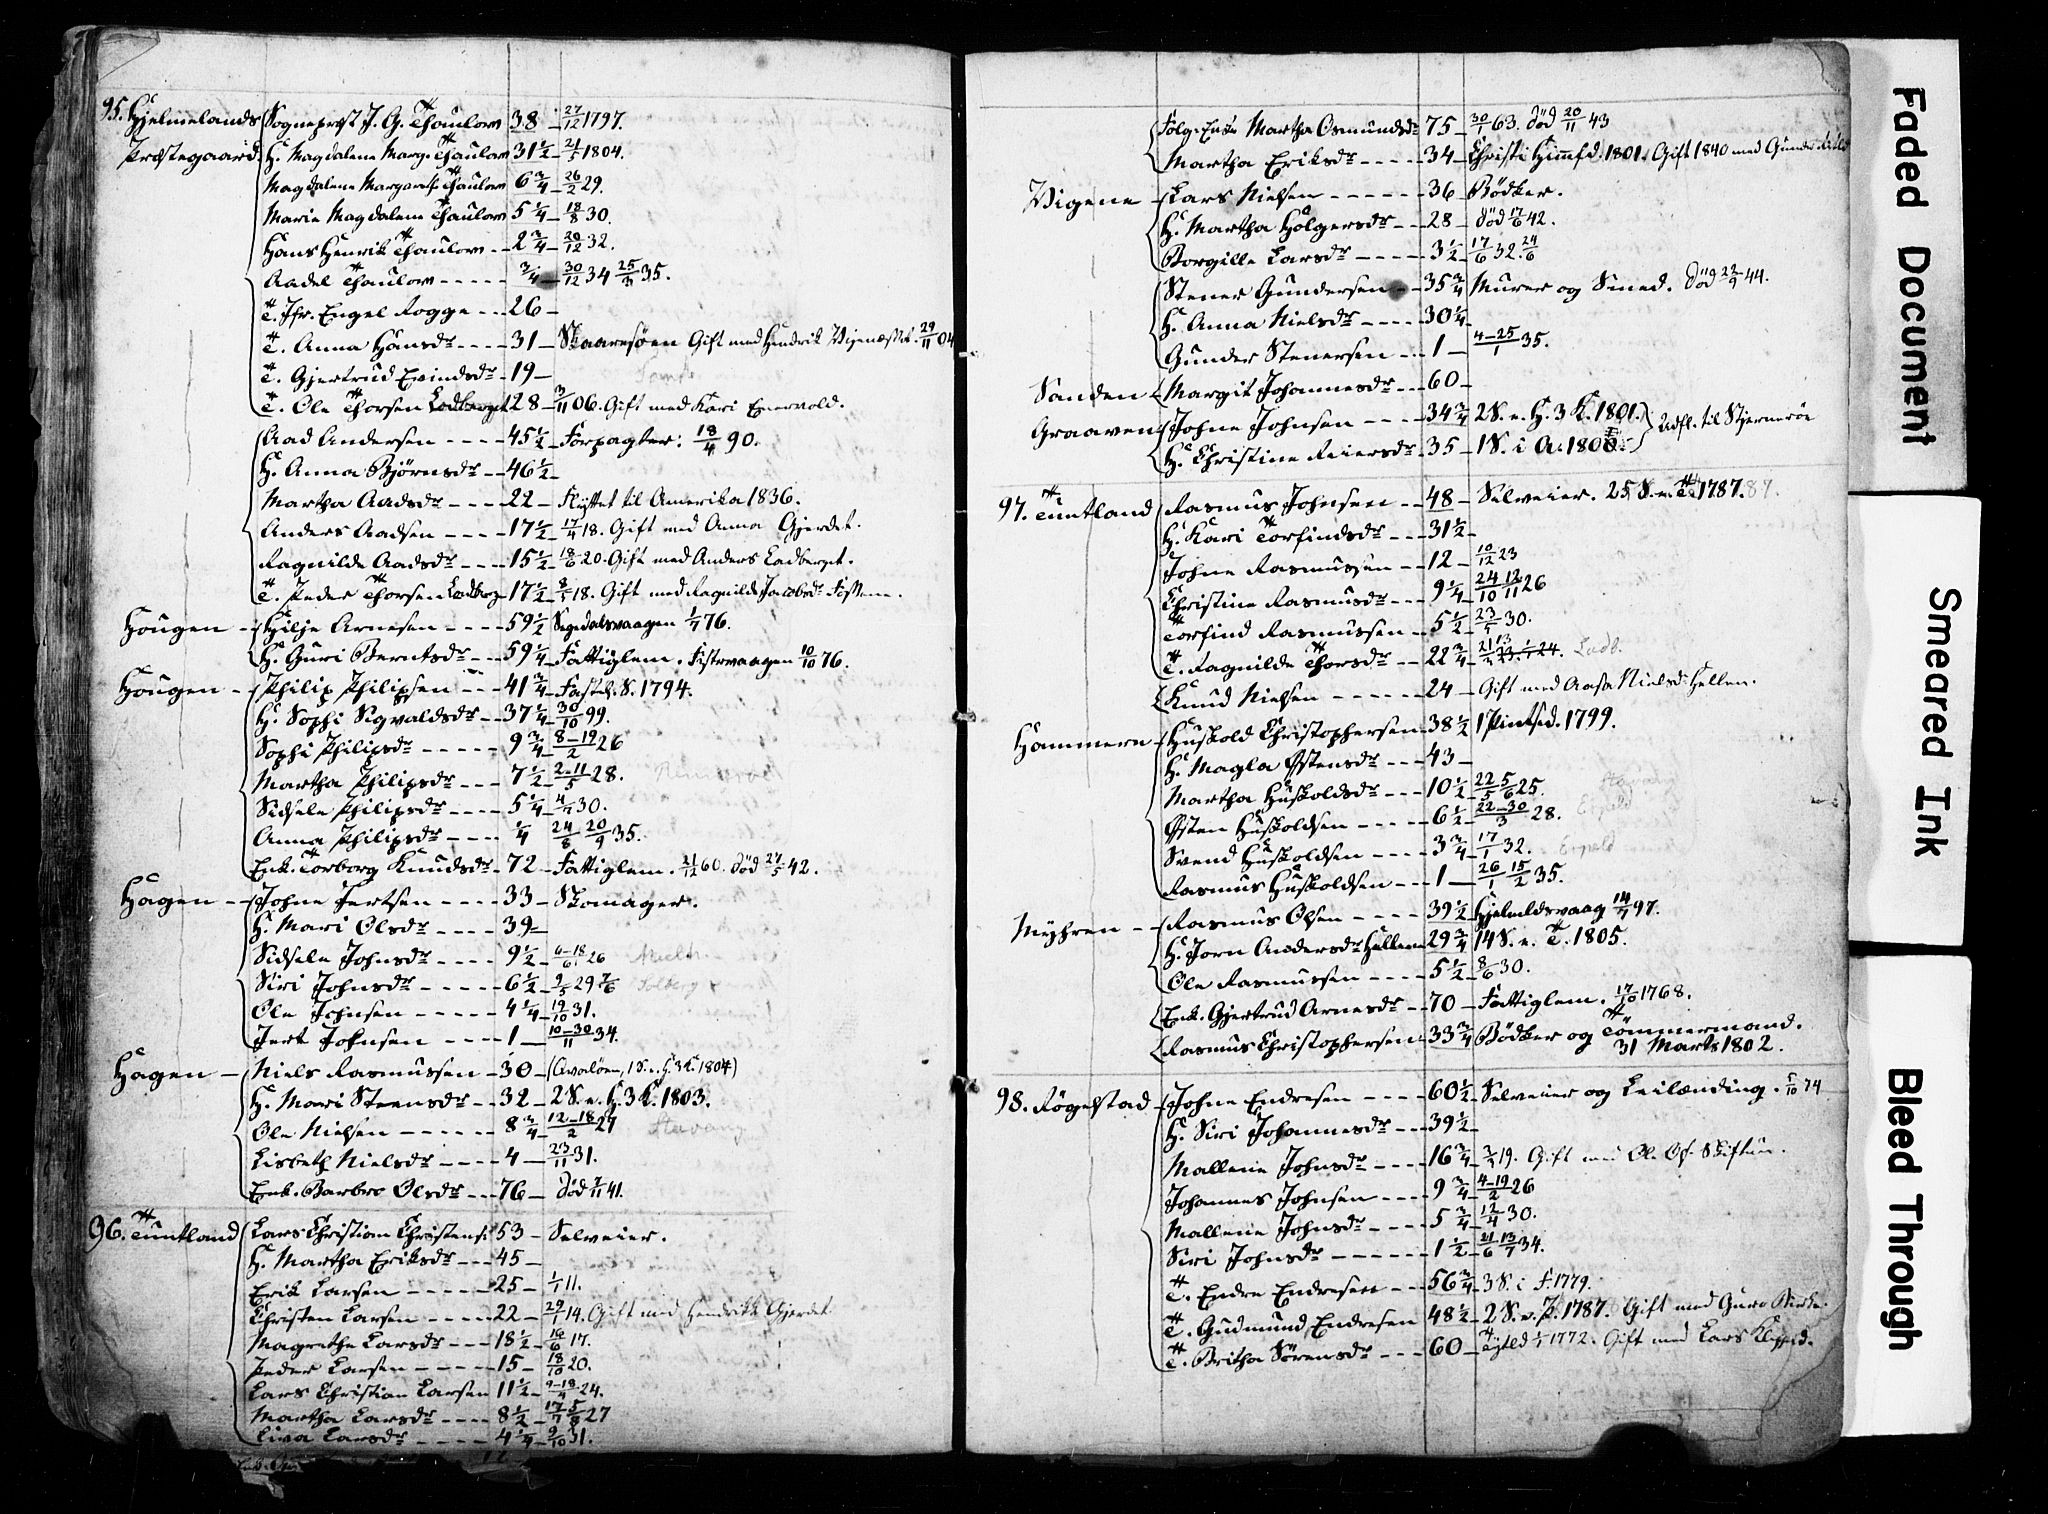 95. Hjelmelands Sogneprest J. G. Thaulow 38 – 27/12 1797.
Præstegaard. H. Magdalene Marg. Thaulow 31 1/2 – 21/5 1804.
Magdalene Margareth Thaulow 6 3/4 – 26/2 29.
Marie Magdalene Thaulow 5 1/4 – 18/8 30.
Hans Henrik Thaulow – – 2 3/4 – 20/12 32.
Aadel Thaulow – – – – – 3/4 – 30/12 34 25/3 35.
T. Jfr. Engel Rogge – – 26 –
T. Anna Hansdr – – – – 31 – Skaaresöen Gift med Hendrik Vigenæsset. 29/11 04
T. Gjertrud Evindsdr – 19 –
T. Ole Thorsen Ladberget 28 – 3/11 06. Gift med Kari Enervold.
Aad Andersen – – – – 45 1/2 – Forpagter. 18/4 90.
H. Anna Björnsdr – – 46 1/2 –
Martha Aadsdr – – – – 22 – Flyttet til Amerika 1836.
Anders Aadsen – – – – 17 1/2 – 17/4 18. Gift med Anna Gjerdet.
Ragnilde Aadsdr – – – – 15 1/2 – 18/6 20. Gift med Anders Ladberget.
T. Peder Thorsen Ladberg 17 1/2 – 8/5 18. Gift med Ragnilde Jacobsdr
Hougen – Hilje Arnesen – – – – 59 1/2 Segedalsvaagen 1/7 76.
H. Guri Berntsdr – – – 59 1/4 – Fattiglem. Fistervaagen 10/10 76.
Hougen – Philip Philipsen – – – 41 3/4 – Fastel. S. 1794.
H. Sophi Sigvaldsdr – – 37 1/4 – 30/10 99.
Sophi Philipsdr – – – – – 9 3/4 – 8–19/2 26
Martha Philipsdr – – – – 7 1/2 – 2–11/5 28.
Sidsele Philipsdr – – – – 5 1/4 – 4/7 30.
Anna Philipsdr – – – – 1/4 24/8 20/9 35.
Enk. Torborg Knudsdr – 72 – Fattiglem. 21/12 60. död 27/5 42.
Hagen – – Johne Jertsen – – – – 33 – Skomager.
H. Mari Olsdr – – – – 39 –
Sidsele Johnsdr – – – – 9 1/2 – 6–18/6 26
Siri Johnsdr – – – – – 6 1/2 – 2/5 29 7/6 Solberg
Ole Johnsen – – – – – 4 1/4 – 19/10 31.
Jert Johnsen – – – – – 1 – 10–30/11 34.
Hagen – Niels Rasmussen – 30 – (Avalöen, 1 S. e. H. 3 K. 1804)
H. Mari Steensdr – – 32 – 2 S. e. H. 3 K. 1803.
Ole Nielsen – – – – – 8 3/4 – 12–18/2 27 Stavang
Lisbeth Nielsdr – – – – 4 – 23/11 31.
Enk. Barbro Olsdr – – – 76 – död 7/11 41.
96. Tuntland Lars Christian Christens: 53 – Selveier.
H. Martha Eriksdr – – – 45 –
Erik Larsen – – – – – 25 – 1/1 11.
Christen Larsen – – – – 22 – 29/1 14. Gift med Hendrikke Gjerdet
Magrethe Larsdr – – – 18 1/2 – 16/6 17.
Peder Larsen – – – – – 15 – 18/10 20.
Lars Christian Larsen 11 1/2 – 9–18/4 24.
Martha Larsdr – – – – 8 1/2 – 17/7 5/8 27
Liva Larsdr – – – – – 4 1/4 – 9/10 31.
Martha Osmundsdr 75 – 30/1 63. död 20/11 43
Martha Eriksdr – – – – 34 – Christi Himmfd. 1801. Gift 1840 med Gunder
Vigene – Lars Nielsen – – – – – – 36 – Bödker.
H. Martha Holgersdr – – 28 – död 17/6 42.
Borgille Larsdr – – – – – 3 1/2 – 17/6 32. 24/6
Stener Gundersen – – 35 3/4 Murer og Smed. död 22/9 44.
H. Anna Nielsdr – – – – 30 1/4 –
Gunder Stenersen – – – 1 – 4–25/1 35.
Sanden – Margit Johannesdr – – – 60 –
Graaven Johne Johnsen – – – – 34 3/4 2 S. e. H. 3 K. 1801. Udfl. til Stjernerøe
H. Christine Reiersdr – 35 – 1 S. i A. 1800.
97. Tuntland Rasmus Johnsen – – 48 – Selveier. 25 S. e. T. 1787. 87.
H. Kari Torfindsdr – – – 31 1/2 –
Johne Rasmussen – – 12 – 10/12 23
Christine Rasmusdr – – – 9 1/4 – 24/10 12/11 26
Torfind Rasmussen – – 5 1/2 – 23/5 30.
T. Ragnilde Thorsdr – – 22 3/4 – Ladb.
Knud Nielsen – – – – – – 24 – Gift med Aasa Nielsdr Hellen.
Hammeren – Huskold Christophersen 38 1/2 1 Pintsed. 1799.
H. Magla Østensdr – – – 43 –
Martha Huskoldsdr – – – 10 1/2 – 22/5 5/6 25.
Østen Huskoldsen – – – – 6 1/2 – 22–30/3 28.
Svend Huskoldsen – – – – 3 3/4 – 17/1 32.
Rasmus Huskoldsen – – – 1 – 26/1 15/2 35.
Myhren – – Rasmus Olsen – – – – 39 1/2 Hjelmldsvaag 14/7 97.
H. Jorn Andersdr Hellem 29 3/4 14 S. e. T. 1805.
Ole Rasmussen – – – – 5 1/2 – 8/6 30.
Enk. Gjertrud Arnesdr – – 70 – Fattiglem. 17/10 1768.
Rasmus Christophersen 33 3/4 Bödker og Tömmermand.
31 Marts 1802.
98. Røgelstad – Johne Endresen – – – – 60 1/2 – Selveier og Leilænding. 5/10 74
H. Siri Johannesdr – – – 39 1/2 –
Mallene Johnsdr – – – – 16 3/4 – 3/4 19. Gift med Ole Ols. Skiftun.
Johannes Johnsen – – – – 9 3/4 – 4–19/2 26
Mallene Johnsdr – – – – 5 3/4 – 12/4 30.
Siri Johnsdr – – – – – – 1 1/2 – 21/6 13/7 34.
T. Endre Endresen – – – 56 3/4 – 3 S. i F. 1779.
T. Gudmund Endresen 48 1/2 – 2 S. e. P. 1787. Gift med Guro Birke.
T. Britha Sörensdr – – – 60 – Tytld 1/1 1772. Gift med Lars Klepped.
Faded Document
Smeared Ink
Bleed Through